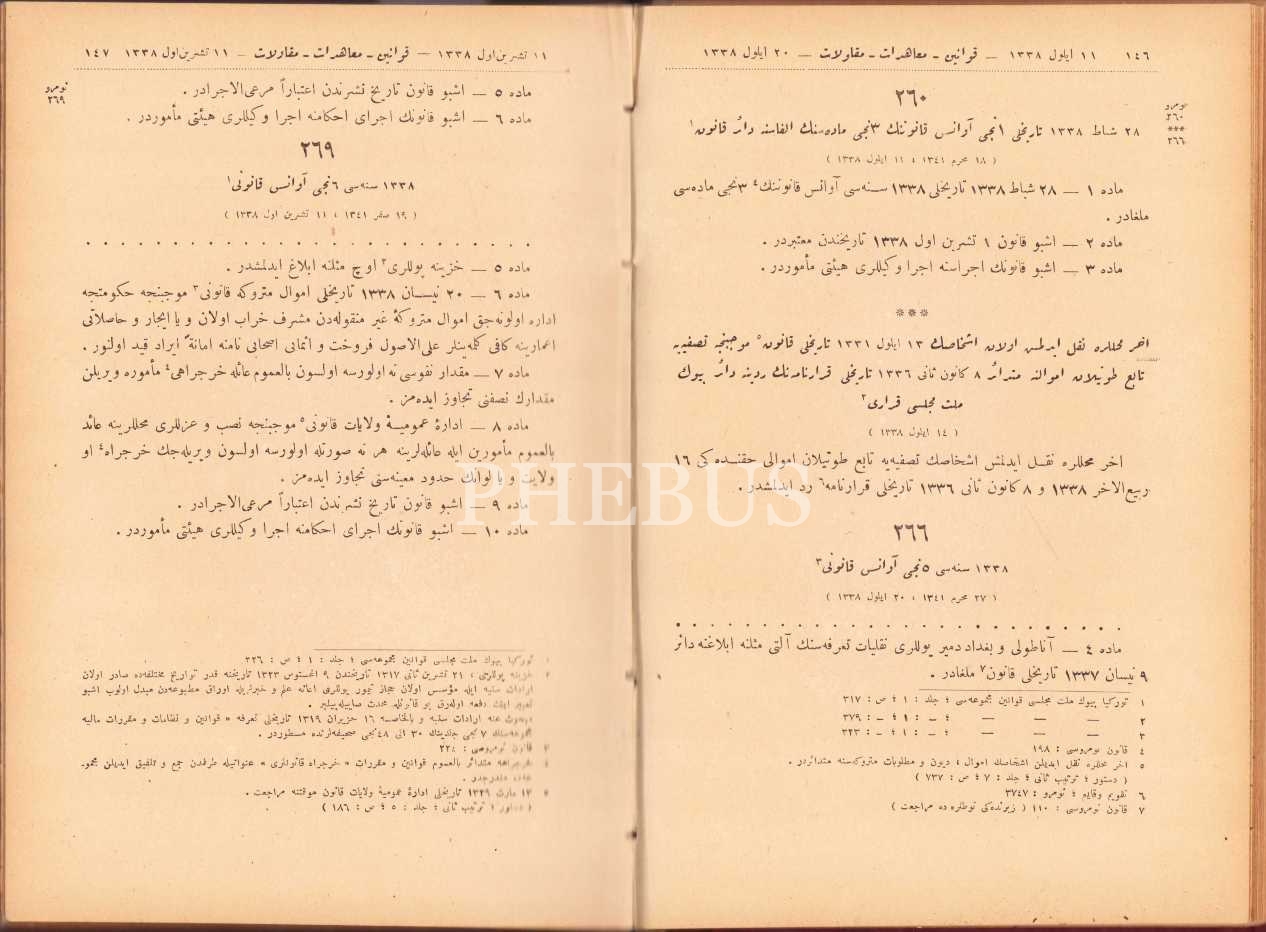 ١٤٦ ١١ ايلول ١٣٣٨ — قوانين ـ معاهدات ـ مقاولات — ٢٠ ايلول ١٣٣٨
نومرو
٢٦٠
***
٢٦٦
٢٦٠
٢٨ شباط ١٣٣٨ تاريخلى ١نجى آوانس قانوننك ٣نجى ماده‌سنك الغاسنه دائر قانون١
( ١٨ محرم ١٣٤١ ، ١١ ايلول ١٣٣٨ )
ماده ١ — ٢٨ شباط ١٣٣٨ تاريخلى ١٣٣٨ سنه‌سى آوانس قانوننك٤ ٣نجى ماده‌سى
ملغادر .
ماده ٢ — اشبو قانون ١ تشرين اول ١٣٣٨ تاريخندن معتبردر .
ماده ٣ — اشبو قانونك اجراسنه اجرا وكيللرى هيئتى مأموردر .
***
اخر محللره نقل ايدلمش اولان اشخاصك ١٣ ايلول ١٣٣١ تاريخلى قانون٥ موجبنجه تصفيه‌يه
تابع طوتيلان اموالنه متدائر ٨ كانون ثانى ١٣٣٦ تاريخلى قرارنامه‌نك ردينه دائر بيوك
ملت مجلسى قرارى٢
( ١٤ ايلول ١٣٣٨ )
اخر محللره نقل ايدلمش اشخاصك تصفيه‌يه تابع طوتيلان اموالى حقنده‌كى ١٦
ربيع‌الاخر ١٣٣٨ و ٨ كانون ثانى ١٣٣٦ تاريخلى قرارنامه٦ رد ايدلمشدر .
٢٦٦
١٣٣٨ سنه‌سى ٥نجى آوانس قانونى٣
( ٢٧ محرم ١٣٤١ ، ٢٠ ايلول ١٣٣٨ )
. . . . . . . . . . . . . . . . . . . .
ماده ٤ — آناطولى و بغداد دمير يوللرى نقليات تعرفه‌سنك آلتى مثلنه ابلاغنه دائر
٩ نيسان ١٣٣٧ تاريخلى قانون٧ ملغادر .
١ توركيا بيوك ملت مجلسى قوانين مجموعه‌سى ؛ جلد : ١ ؛ ص : ٣١٧
٢ — — — ؛ — : ١ ؛ — : ٣٧٩
٣ — — — ؛ — : ١ ؛ — : ٣٢٣
٤ قانون نومروسى : ١٩٨
٥ اخر محللره نقل ايديلن اشخاصك اموال ؛ ديون و مطلوبات متروكه‌سنه متدائردر .
( دستور ؛ ترتيب ثانى ؛ جلد : ٧ ؛ ص : ٧٣٧ )
٦ تقويم وقايع ؛ نومرو : ٣٧٤٧
٧ قانون نومروسى : ١١٠ ( زيرنده‌كى نوطلره ده مراجعت )
١١ تشرين اول ١٣٣٨ — قوانين ـ معاهدات ـ مقاولات — ١١ تشرين اول ١٣٣٨ ١٤٧
نومرو
٢٦٩
ماده ٥ — اشبو قانون تاريخ نشرندن اعتباراً مرعى‌الاجرادر .
ماده ٦ — اشبو قانونك اجراى احكامنه اجرا وكيللرى هيئتى مأموردر .
٢٦٩
١٣٣٨ سنه‌سى ٦نجى آوانس قانونى١
( ١٩ صفر ١٣٤١ ، ١١ تشرين اول ١٣٣٨ )
. . . . . . . . . . . . . . . . . . . .
ماده ٥ — خزينه پوللرى٢ اوچ مثلنه ابلاغ ايدلمشدر .
ماده ٦ — ٢٠ نيسان ١٣٣٨ تاريخلى اموال متروكه قانونى٣ موجبنجه حكومتجه
اداره اولونه‌جق اموال متروكهٔ غير منقوله‌دن مشرف خراب اولان و يا ايجار و حاصلاتى
اعمارينه كافى كلمه‌ينلر على‌الاصول فروخت و اثمانى اصحابى نامنه امانةً ايراد قيد اولنور .
ماده ٧ — مقدار نفوسى نه اولورسه اولسون بالعموم عائله خرجراهى٤ مأموره ويريلن
مقدارك نصفنى تجاوز ايده‌مز .
ماده ٨ — ادارهٔ عموميهٔ ولايات قانونى٥ موجبنجه نصب و عزللرى محللرينه عائد
بالعموم مأمورين ايله عائله‌لرينه هر نه صورتله اولورسه اولسون ويريله‌جك خرجراه٤ او
ولايت و يا لوانك حدود معينه‌سنى تجاوز ايده‌مز .
ماده ٩ — اشبو قانون تاريخ نشرندن اعتباراً مرعى‌الاجرادر .
ماده ١٠ — اشبو قانونك اجراى احكامنه اجرا وكيللرى هيئتى مأموردر .
١ توركيا بيوك ملت مجلسى قوانين مجموعه‌سى ؛ جلد : ١ ؛ ص : ٣٢٦
٢ خزينه پوللرى ، ٢١ تشرين ثانى ١٣١٧ تاريخندن ٩ اغستوس ١٣٢٣ تاريخنه قدر تواريخ مختلفه‌ده صادر اولان
ارادات سنيه ايله مؤسس اولان حجاز تيمور يوللرى اعانه علم و خبرلريله اوراق مطبوعه‌دن مبدل اولوب اشبو
دفعه اوله‌رق بو قانونله محدث صاييله‌بيلير .
عنه ارادات سنيه و بالخاصه ١٦ حزيران ١٣١٩ تاريخلى تعرفه « قوانين و نظامات و مقررات ماليه
مجموعه‌سنك ٧نجى جلدينك ٣٠ الى ٤٨نجى صحيفه‌لرنده مسطوردر .
٣ قانون نومروسى : ٢٢٤
٤ خرجراهه متدائر بالعموم قوانين و مقررات « خرجراه قانونلرى » عنوانيله طرفمدن جمع و تلفيق ايديلن
مندرجدر .
٥ ١٣ مارت ١٣٢٩ تاريخلى ادارهٔ عموميهٔ ولايات قانون موقتنه مراجعت .
( دستور ؛ ترتيب ثانى ؛ جلد : ٥ ؛ ص : ١٨٦ )
PHEBUS